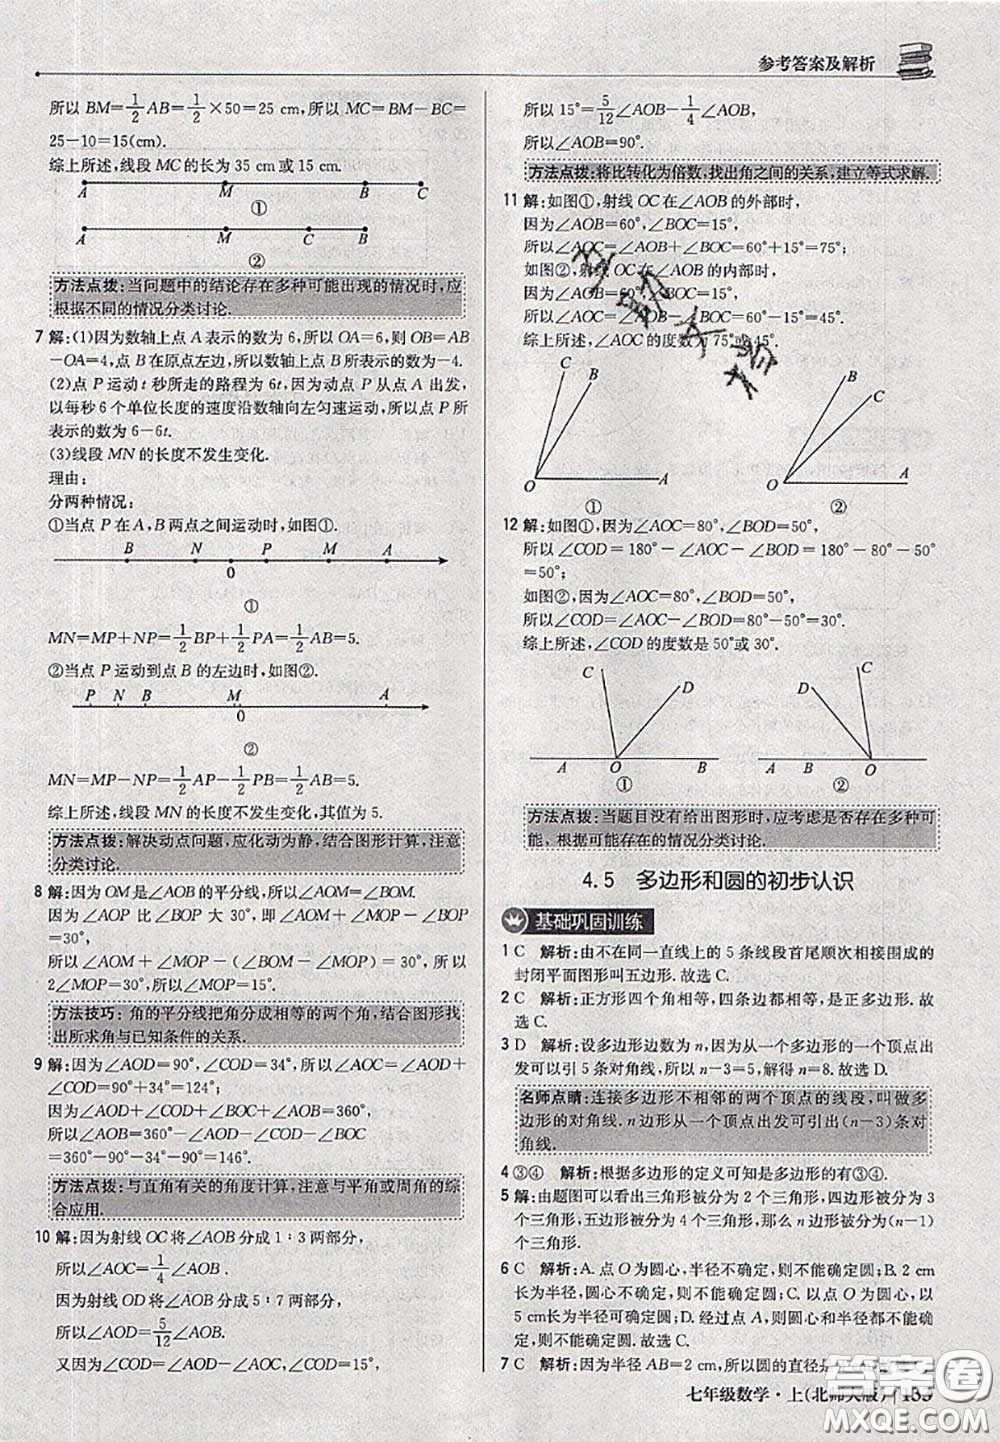 参考答案及解析
所以 BM=1/2AB=1/2×50=25 cm,所以 MC=BM-BC=
25-10=15(cm).
综上所述,线段 MC 的长为 35 cm 或 15 cm.
A M B C
①
A M C B
②
方法点拨:当问题中的结论存在多种可能出现的情况时,应
根据不同的情况分类讨论.
7 解:(1)因为数轴上点 A 表示的数为 6,所以 OA=6,则 OB=AB
-OA=4,点 B 在原点左边,所以数轴上点 B 所表示的数为-4.
(2)点 P 运动 t 秒所走的路程为 6t,因为动点 P 从点 A 出发,
以每秒 6 个单位长度的速度沿数轴向左匀速运动,所以点 P 所
表示的数为 6-6t.
(3)线段 MN 的长度不发生变化.
理由:
分两种情况:
①当点 P 在 A,B 两点之间运动时,如图①.
B N 0 P M A
①
MN=MP+NP=1/2BP+1/2PA=1/2AB=5.
②当点 P 运动到点 B 的左边时,如图②.
P N B M 0 A
②
MN=MP-NP=1/2AP-1/2PB=1/2AB=5.
综上所述,线段 MN 的长度不发生变化,其值为 5.
方法点拨:解决动点问题,应化动为静,结合图形计算,注意
分类讨论.
8 解:因为 OM 是∠AOB 的平分线,所以∠AOM=∠BOM.
因为∠AOP 比∠BOP 大 30°,即∠AOP-∠BOP
=30°,
所以∠AOM+∠MOP-(∠BOM-∠MOP)=30°,所以
2∠MOP=30°,所以∠MOP=15°.
方法技巧:角的平分线把角分成相等的两个角,结合图形找
出所求角与已知条件的关系.
9 解:因为∠AOD=90°,∠COD=34°,所以∠AOC=∠AOD+
∠COD=90°+34°=124°;
因为∠AOD+∠COD+∠BOC+∠AOB=360°,
所以∠AOB=360°-∠AOD-∠COD-∠BOC
=360°-90°-34°-90°=146°.
方法点拨:与直角有关的角度计算,注意与平角或周角的综
合应用.
10 解:因为射线 OC 将∠AOB 分成 1∶3 两部分,
所以∠AOC=1/4∠AOB.
因为射线 OD 将∠AOB 分成 5∶7 两部分,
所以∠AOD=5/12∠AOB.
又因为∠AOD=∠AOC+∠COD,∠COD=15°,
所以 15°=5/12∠AOB-1/4∠AOB,
所以∠AOB=90°.
方法点拨:将比转化为倍数,找出角之间的关系,建立等式求解.
11 解:如图①,射线 OC 在∠AOB 的外部时,
因为∠AOB=60°,∠BOC=15°,
所以∠AOC=∠AOB+∠BOC=60°+15°=75°;
如图②,射线 OC 在∠AOB 的内部时,
因为∠AOB=60°,∠BOC=15°,
所以∠AOC=∠AOB-∠BOC=60°-15°=45°.
综上所述,∠AOC 的度数为 75°或 45°.
C B O A
①
B C O A
②
12 解:如图①,因为∠AOC=80°,∠BOD=50°,
所以∠COD=180°-∠AOC-∠BOD=180°-80°-50°
=50°;
如图②,因为∠AOC=80°,∠BOD=50°,
所以∠COD=∠AOC-∠BOD=80°-50°=30°.
综上所述,∠COD 的度数是 50°或 30°.
C D A O B
①
D C A B O
②
方法点拨:当题目没有给出图形时,应考虑是否存在多种可
能,根据可能存在的情况分类讨论.
4.5 多边形和圆的初步认识
基础巩固训练
1 C 解析:由不在同一直线上的 5 条线段首尾顺次相接围成的
封闭平面图形叫五边形.故选 C.
2 C 解析:正方形四个角相等,四条边都相等,是正多边形.故
选 C.
3 D 解析:设多边形边数为 n,因为从一个多边形的一个顶点出
发可以引 5 条对角线,所以 n-3=5,解得 n=8.故选 D.
名师点睛:连接多边形不相邻的两个顶点的线段,叫做多
边形的对角线.n 边形从一个顶点出发可引出(n-3)条对
角线.
4 ③④ 解析:根据多边形的定义可知是多边形的有③④.
5 解:由题图可以看出三角形被分为 2 个三角形,四边形被分为 3
个三角形,五边形被分为 4 个三角形,那么 n 边形被分为(n-1)
个三角形.
6 C 解析:A.点 O 为圆心,半径不确定,则不能确定圆;B.2 cm
长为半径,圆心不确定,则不能确定圆;C.以点 O 为圆心,
5 cm长为半径可确定圆;D.经过点 A,圆心和半径都不能确
定,则不能确定圆.故选 C.
7 C 解析:因为半径 AB=2 cm,所以圆的直径是
七年级数学·上(北师大版) 135
答案卷
MXQE.COM